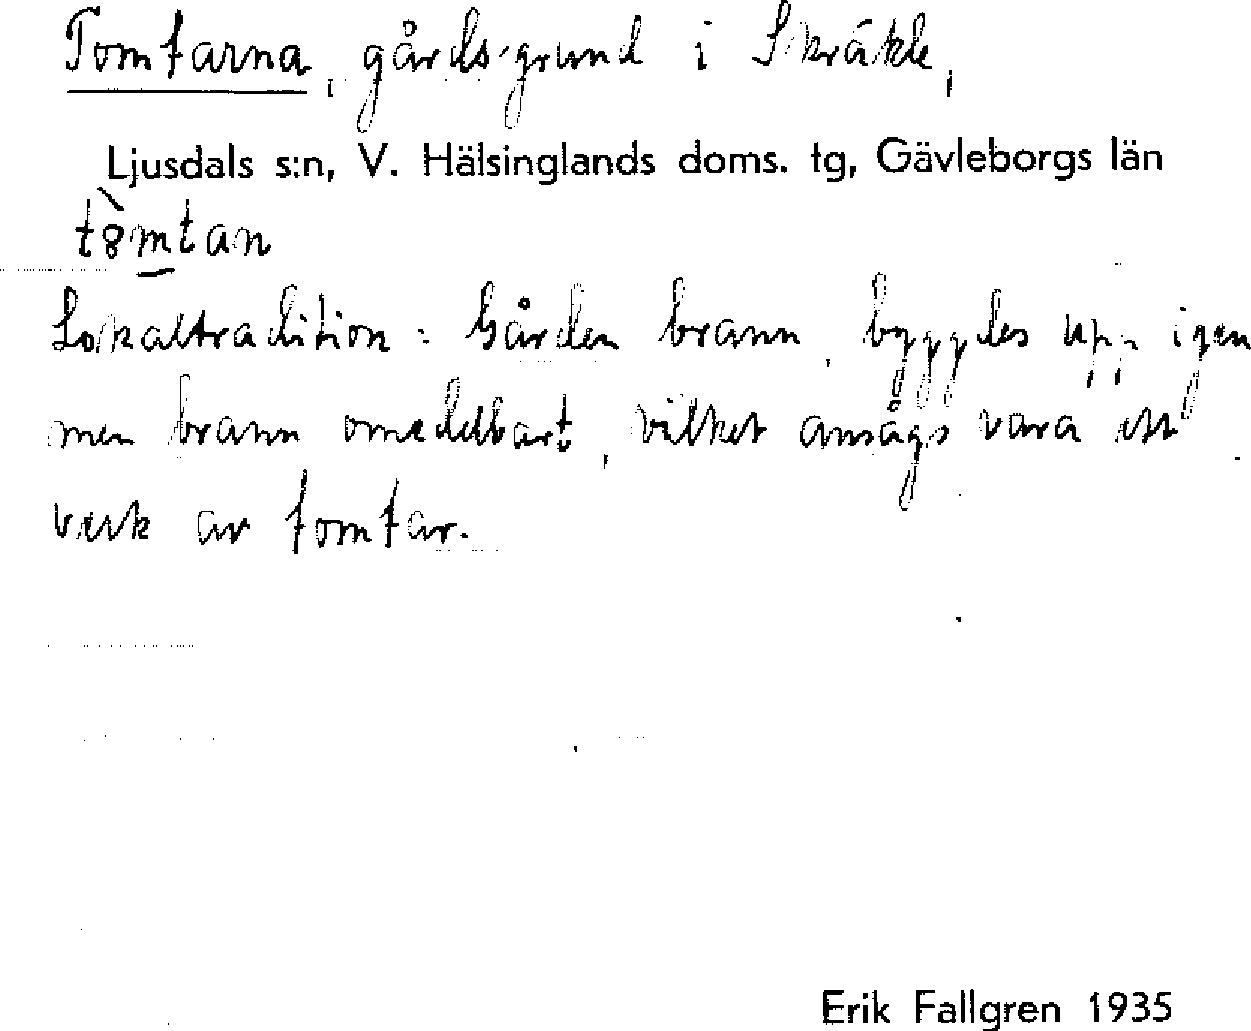 Tomtarna, gårdsgrund i Skräkle,
Ljusdals s:n, V. Hälsinglands doms. tg, Gävleborgs län
tò̀mtan
Lokaltradition: Gården brann, byggdes upp igen
men brann omedelbart, vilket ansågs vara ett
verk av tomtar.
Erik Fallgren 1935